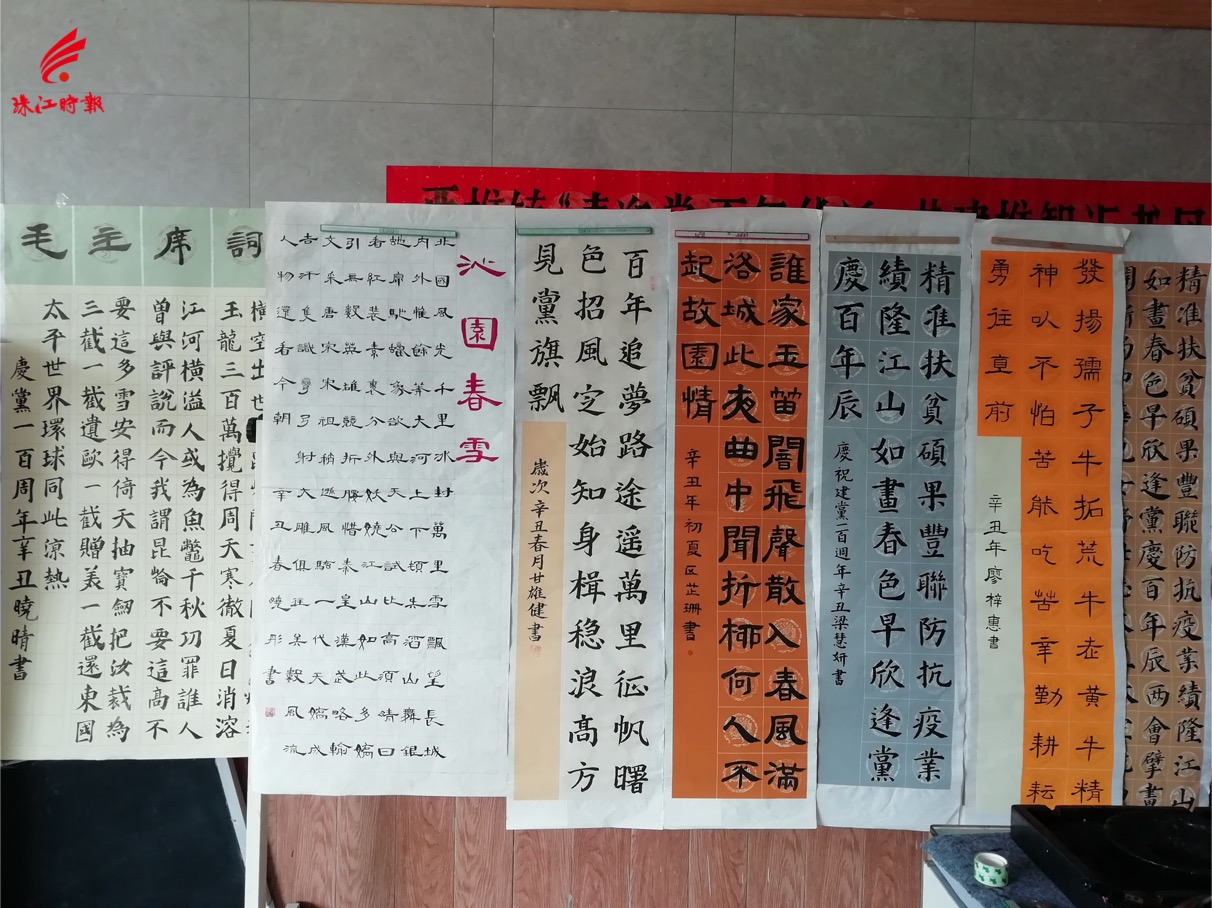 珠江時報
毛主席詞
橫空出世
玉龍三百萬攪得周天寒徹夏日消溶
江河橫溢人或為魚鱉千秋功罪誰人
曾與評說而今我謂昆崙不要這高不
要這多雪安得倚天抽寶劒把汝裁為
三截一截遺歐一截贈美一截還東國
太平世界環球同此涼熱
慶黨一百周年辛丑曉晴書
沁園春雪
北國風光千里冰封萬里雪飄望長城
內外惟餘莽大河上下頓失滔山舞銀
蛇原馳蠟象欲與天公試比高須晴日
看紅裝素裹分外妖嬈江山如此多嬌
引無數英雄競折腰惜秦皇漢武略輸
文采唐宋祖稍遜風騷一代天嬌成
吉汗隻識彎弓射大雕俱往矣數風流
人物還看今朝
辛丑春曉彤書
百年追夢路途遥萬里征帆曙
色招風定始知身楫稳浪高方
見黨旗飄
歲次辛丑春月甘雄健書
誰家玉笛闇飛聲散入春風滿
洛城此夾曲中聞折柳何人不
起故園情
辛丑年初夏区芷珊書
精准扶貧碩果豐聯防抗疫業
績隆江山如畫春色早欣逢黨
慶百年辰
慶祝建黨一百週年辛丑梁慧妍書
發揚孺子牛拓荒牛老黃牛精
神以不怕苦能吃苦辛勤耕耘
勇往直前
辛丑年廖梓惠書
精准扶貧碩果豐聯防抗疫業績隆江山
如畫春色早欣逢黨慶百年辰两會擘畫